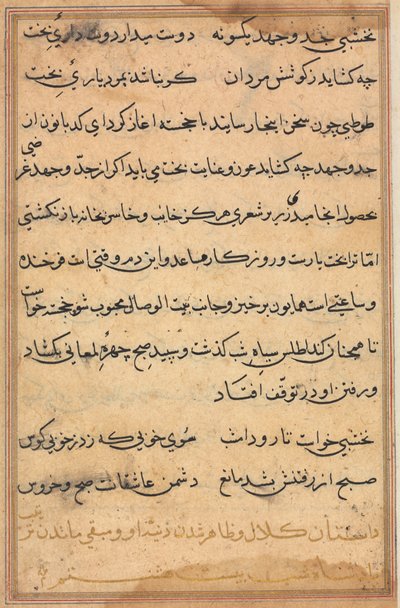 نخشبی جد و جهد یکسو نه دوست میدار دوست داریٔ بخت
چه کشاید ز کوشش مردان کر نباشد بمرد یاریٔ بخت
طوطی چون سخن اینجا رسانید با خجسته آغاز کرد ای کدبانو از
جد و جهد چه کشاید عون و عنایت بخت می باید اکر از جد و جهد غرضی
بحصول انجامیدی زریر و شعری هرکز خایب و خاسر بخانه باز نکشتی
اما ترا بخت یارست و روزکار مساعد و این دم وقتی است فرخنده
و ساعتی است همایون برخیز و جانب بیت الوصال محبوب شو خجسته خواست
تا همچنان کند اطلس سیاه شب کذشت و سپید صبح چهرهٔ لمعانی بکشاد
و رفتن او در توقف افتاد
نخشبی خواست تا رود امشب سوی خوبی که زد ز خوبی کوس
صبح از رفتنش بشد مانع دشمن عاشقانست صبح و خروس
داستان کلال و ظاهر شدن او و ماندن